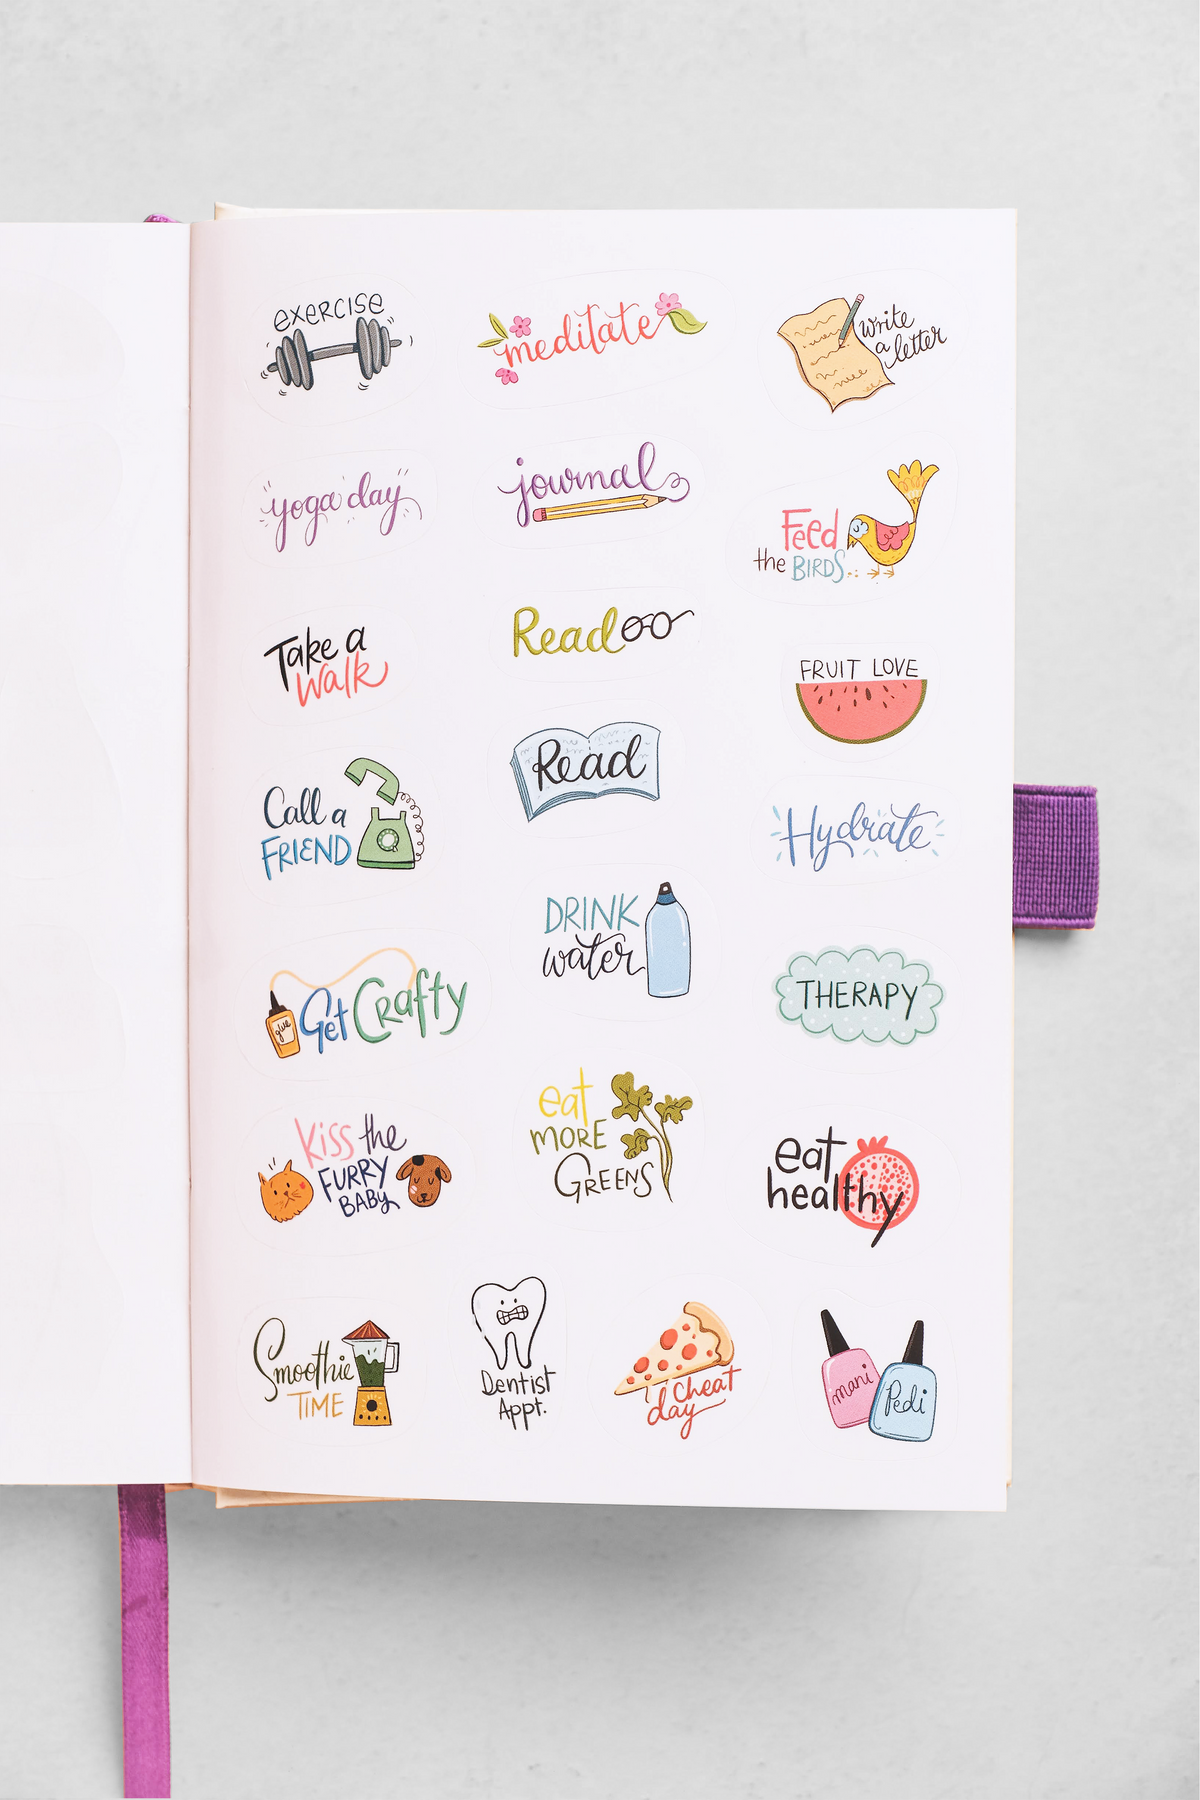 exercise
meditate
write
a letter
yoga day
journal
Feed
the BIRDS
Take a
Walk
Read
FRUIT LOVE
Call a
FRIEND
Read
Hydrate
DRINK
water
glue
Get Crafty
THERAPY
Kiss the
FURRY
BABY
eat
MORE
GREENS
eat
healthy
Smoothie
TIME
Dentist
Appt.
Cheat
day
mani
Pedi